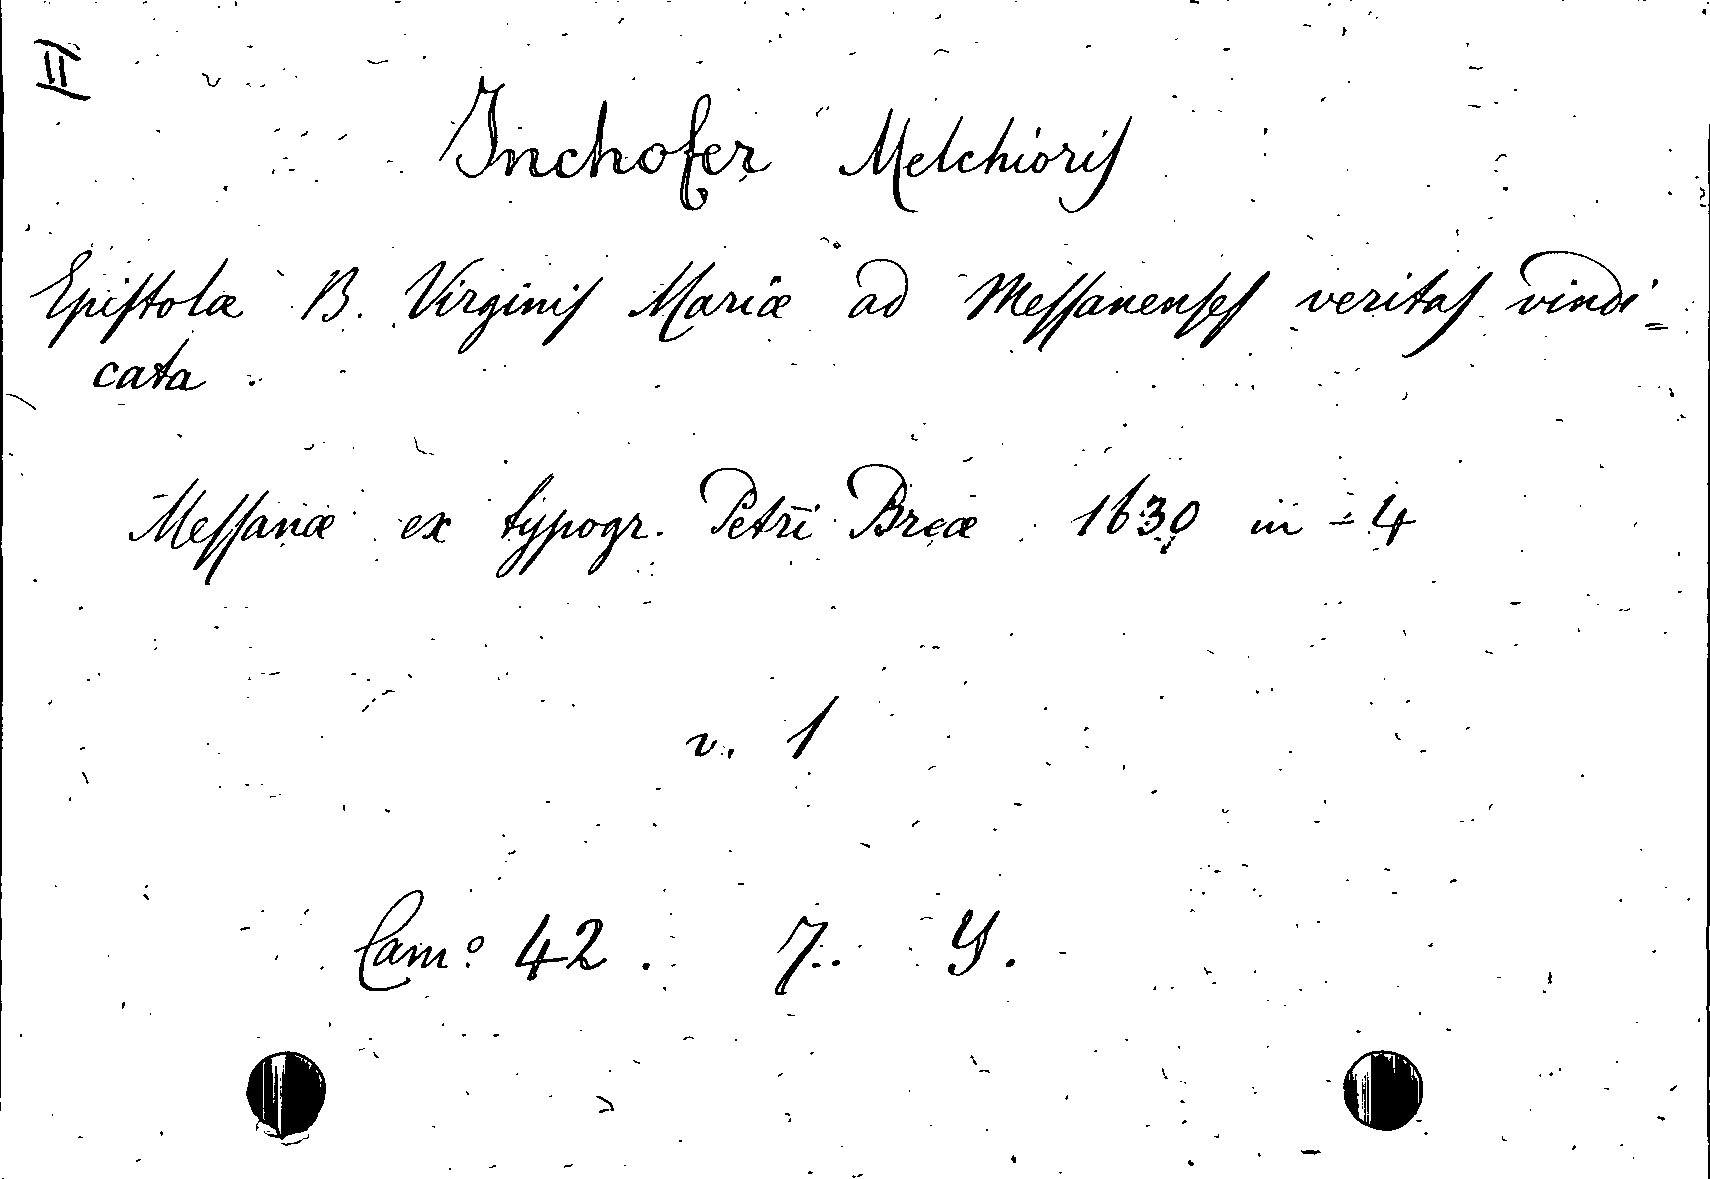 II
Inchofer Melchioris
Epistolæ B. Virginis Mariæ ad Messanenses veritas vindi=
cata.
Messanæ ex typogr. Petri Breæ 1630 in-4
v. 1
Cam.º 42. 7. Y.